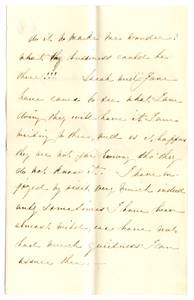 do it to make me wonder?
what thy business could be
there!!! Sarah and Jane
have come to see what I am
doing they will have it I am
writing to thee, well as it happens
they are not far wrong tho' they
do not know it!! I have en-
joyed my visit very much indeed
only sometimes I have been
almost wild, we have not
had much quietness I can
assure thee